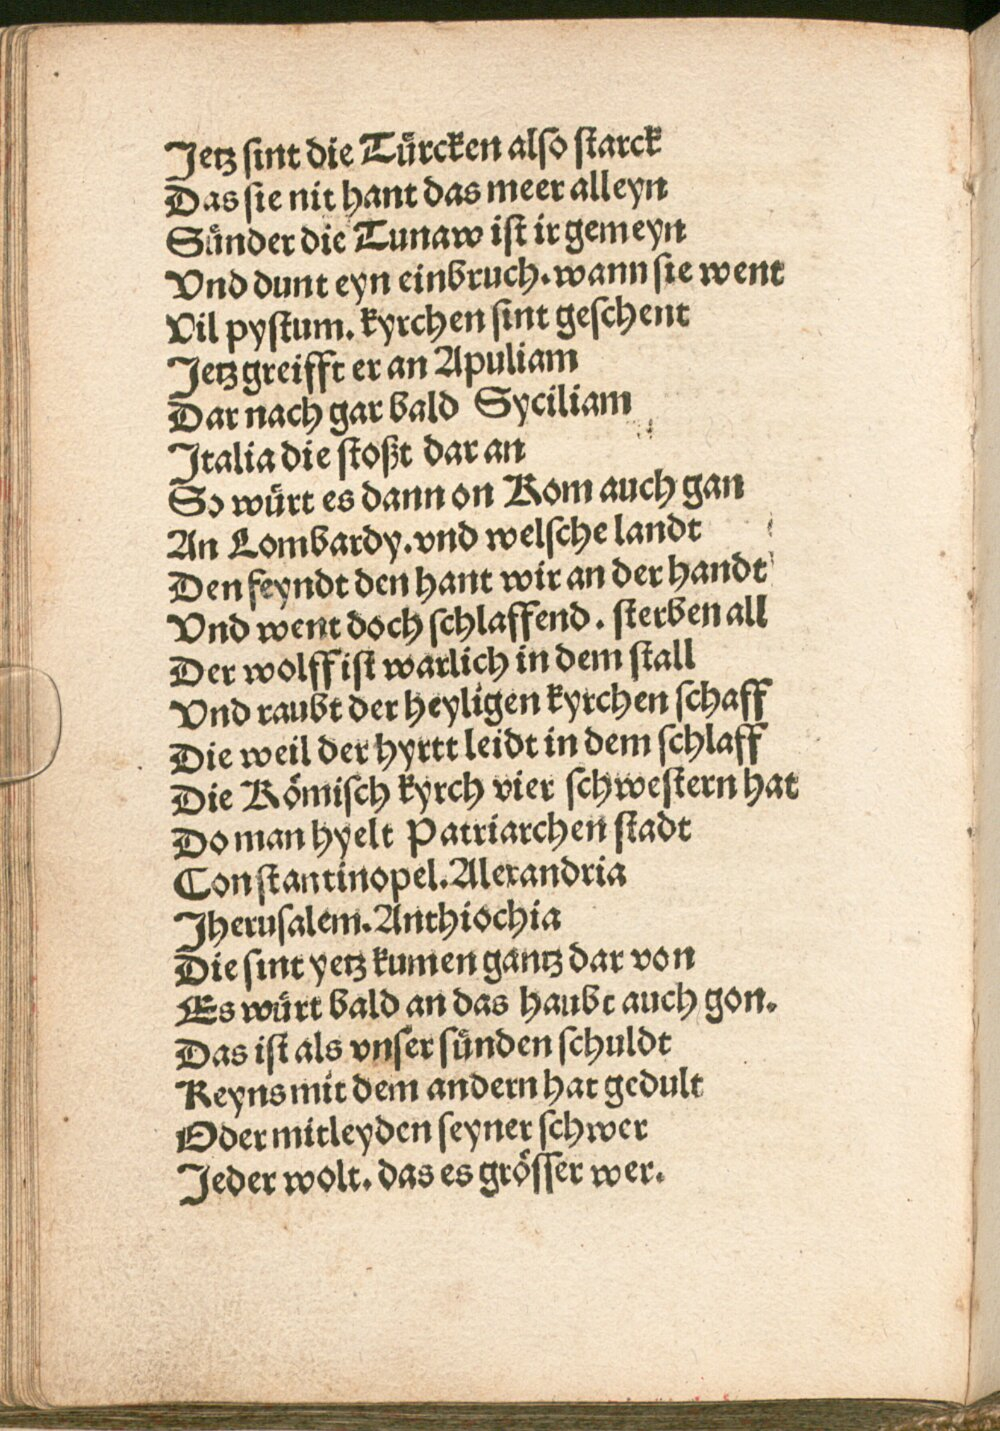 Jetz sint die Türcken also starck
Das sie nit hant das meer alleyn
Sünder die Tunaw ist ir gemeyn
Vnd dunt eyn einbruch. wann sie went
Vil pystum. kyrchen sint geschent
Jetz greifft er an Apuliam
Dar nach gar bald Syciliam
Jtalia die stoßt dar an
So würt es dann on Rom auch gan
An Lombardy. vnd welsche landt
Den feyndt den hant wir an der handt
Vnd went doch schlaffend. sterben all
Der wolff ist warlich in dem stall
Vnd raubt der heyligen kyrchen schaff
Die weil der hyrtt leidt in dem schlaff
Die Römisch kyrch vier schwestern hat
Do man hyelt Patriarchen stadt
Constantinopel. Alexandria
Jherusalem. Anthiochia
Die sint yetz kumen gantz dar von
Es würt bald an das haubt auch gon.
Das ist als vnser sünden schuldt
Keyns mit dem andern hat gedult
Oder mitleyden seyner schwer
Jeder wolt. das es grösser wer.